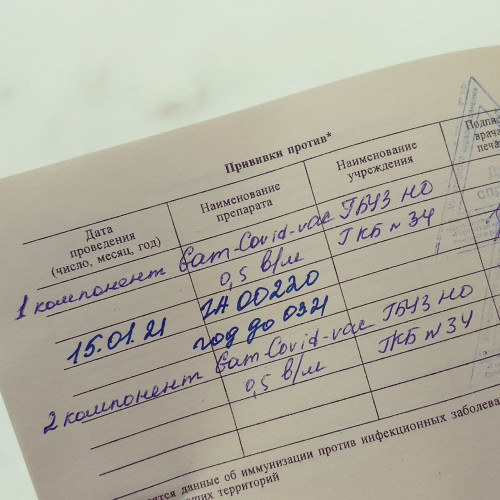 Прививки против*
Дата проведения (число, месяц, год)
Наименование препарата
Наименование учреждения
Подпис
врача
печа
1 компонент Gam-Covid-vac ГБУЗ НО
0,5 в/м ГКБ №34
15.01.21 год до
2 компонент Gam-Covid-vac ГБУЗ НО
0,5 в/м ГКБ №34
ятся данные об иммунизации против инфекционных заболева
ющих территорий